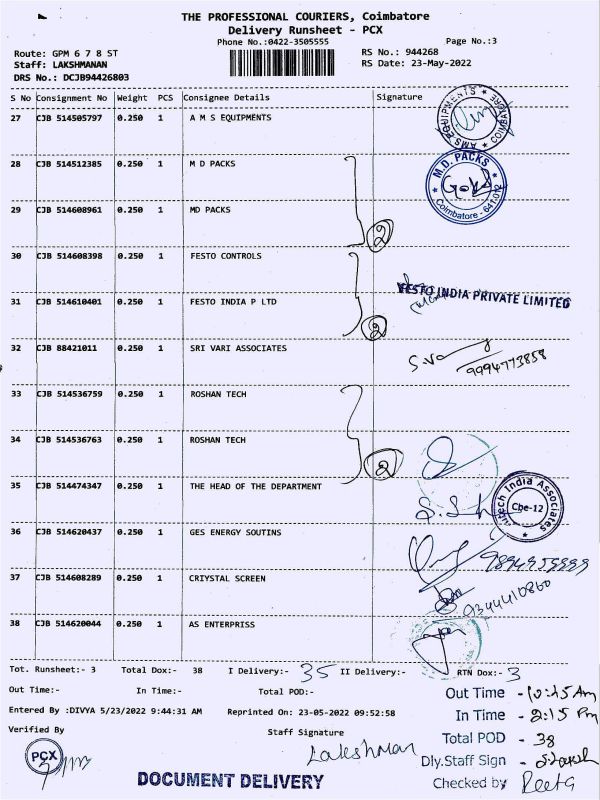 THE PROFESSIONAL COURIERS, Coimbatore
Delivery Runsheet - PCX
Phone No.:0422-3505555
Page No.:3
Route: GPM 6 7 8 ST
RS No.: 944268
Staff: LAKSHMANAN
RS Date: 23-May-2022
DRS No.: DCJB94426803
S No Consignment No Weight PCS Consignee Details Signature
27 CJB 514505797 0.250 1 A M S EQUIPMENTS
AMS EQUIPMENTS COIMBATORE
28 CJB 514512385 0.250 1 M D PACKS
M.D. PACKS
Coimbatore - 641 012
29 CJB 514608961 0.250 1 MD PACKS
2
30 CJB 514608398 0.250 1 FESTO CONTROLS
31 CJB 514610401 0.250 1 FESTO INDIA P LTD
FESTO INDIA PRIVATE LIMITED
2
32 CJB 88421011 0.250 1 SRI VARI ASSOCIATES
9994773858
33 CJB 514536759 0.250 1 ROSHAN TECH
34 CJB 514536763 0.250 1 ROSHAN TECH
2
35 CJB 514474347 0.250 1 THE HEAD OF THE DEPARTMENT
India Associates
Cbe-12
36 CJB 514620437 0.250 1 GES ENERGY SOUTINS
37 CJB 514608289 0.250 1 CRIYSTAL SCREEN
9344410860
38 CJB 514620044 0.250 1 AS ENTERPRISS
Tot. Runsheet:- 3 Total Dox:- 38 I Delivery:- 35 II Delivery:- RTN Dox:- 3
Out Time:- In Time:- Total POD:-
Out Time - 10:15 Am
Entered By :DIVYA 5/23/2022 9:44:31 AM Reprinted On: 23-05-2022 09:52:58
In Time - 2:15 Pm
Verified By Staff Signature
Total POD - 38
PCX
Lakshman
Dly.Staff Sign -
DOCUMENT DELIVERY
Checked by Reeta